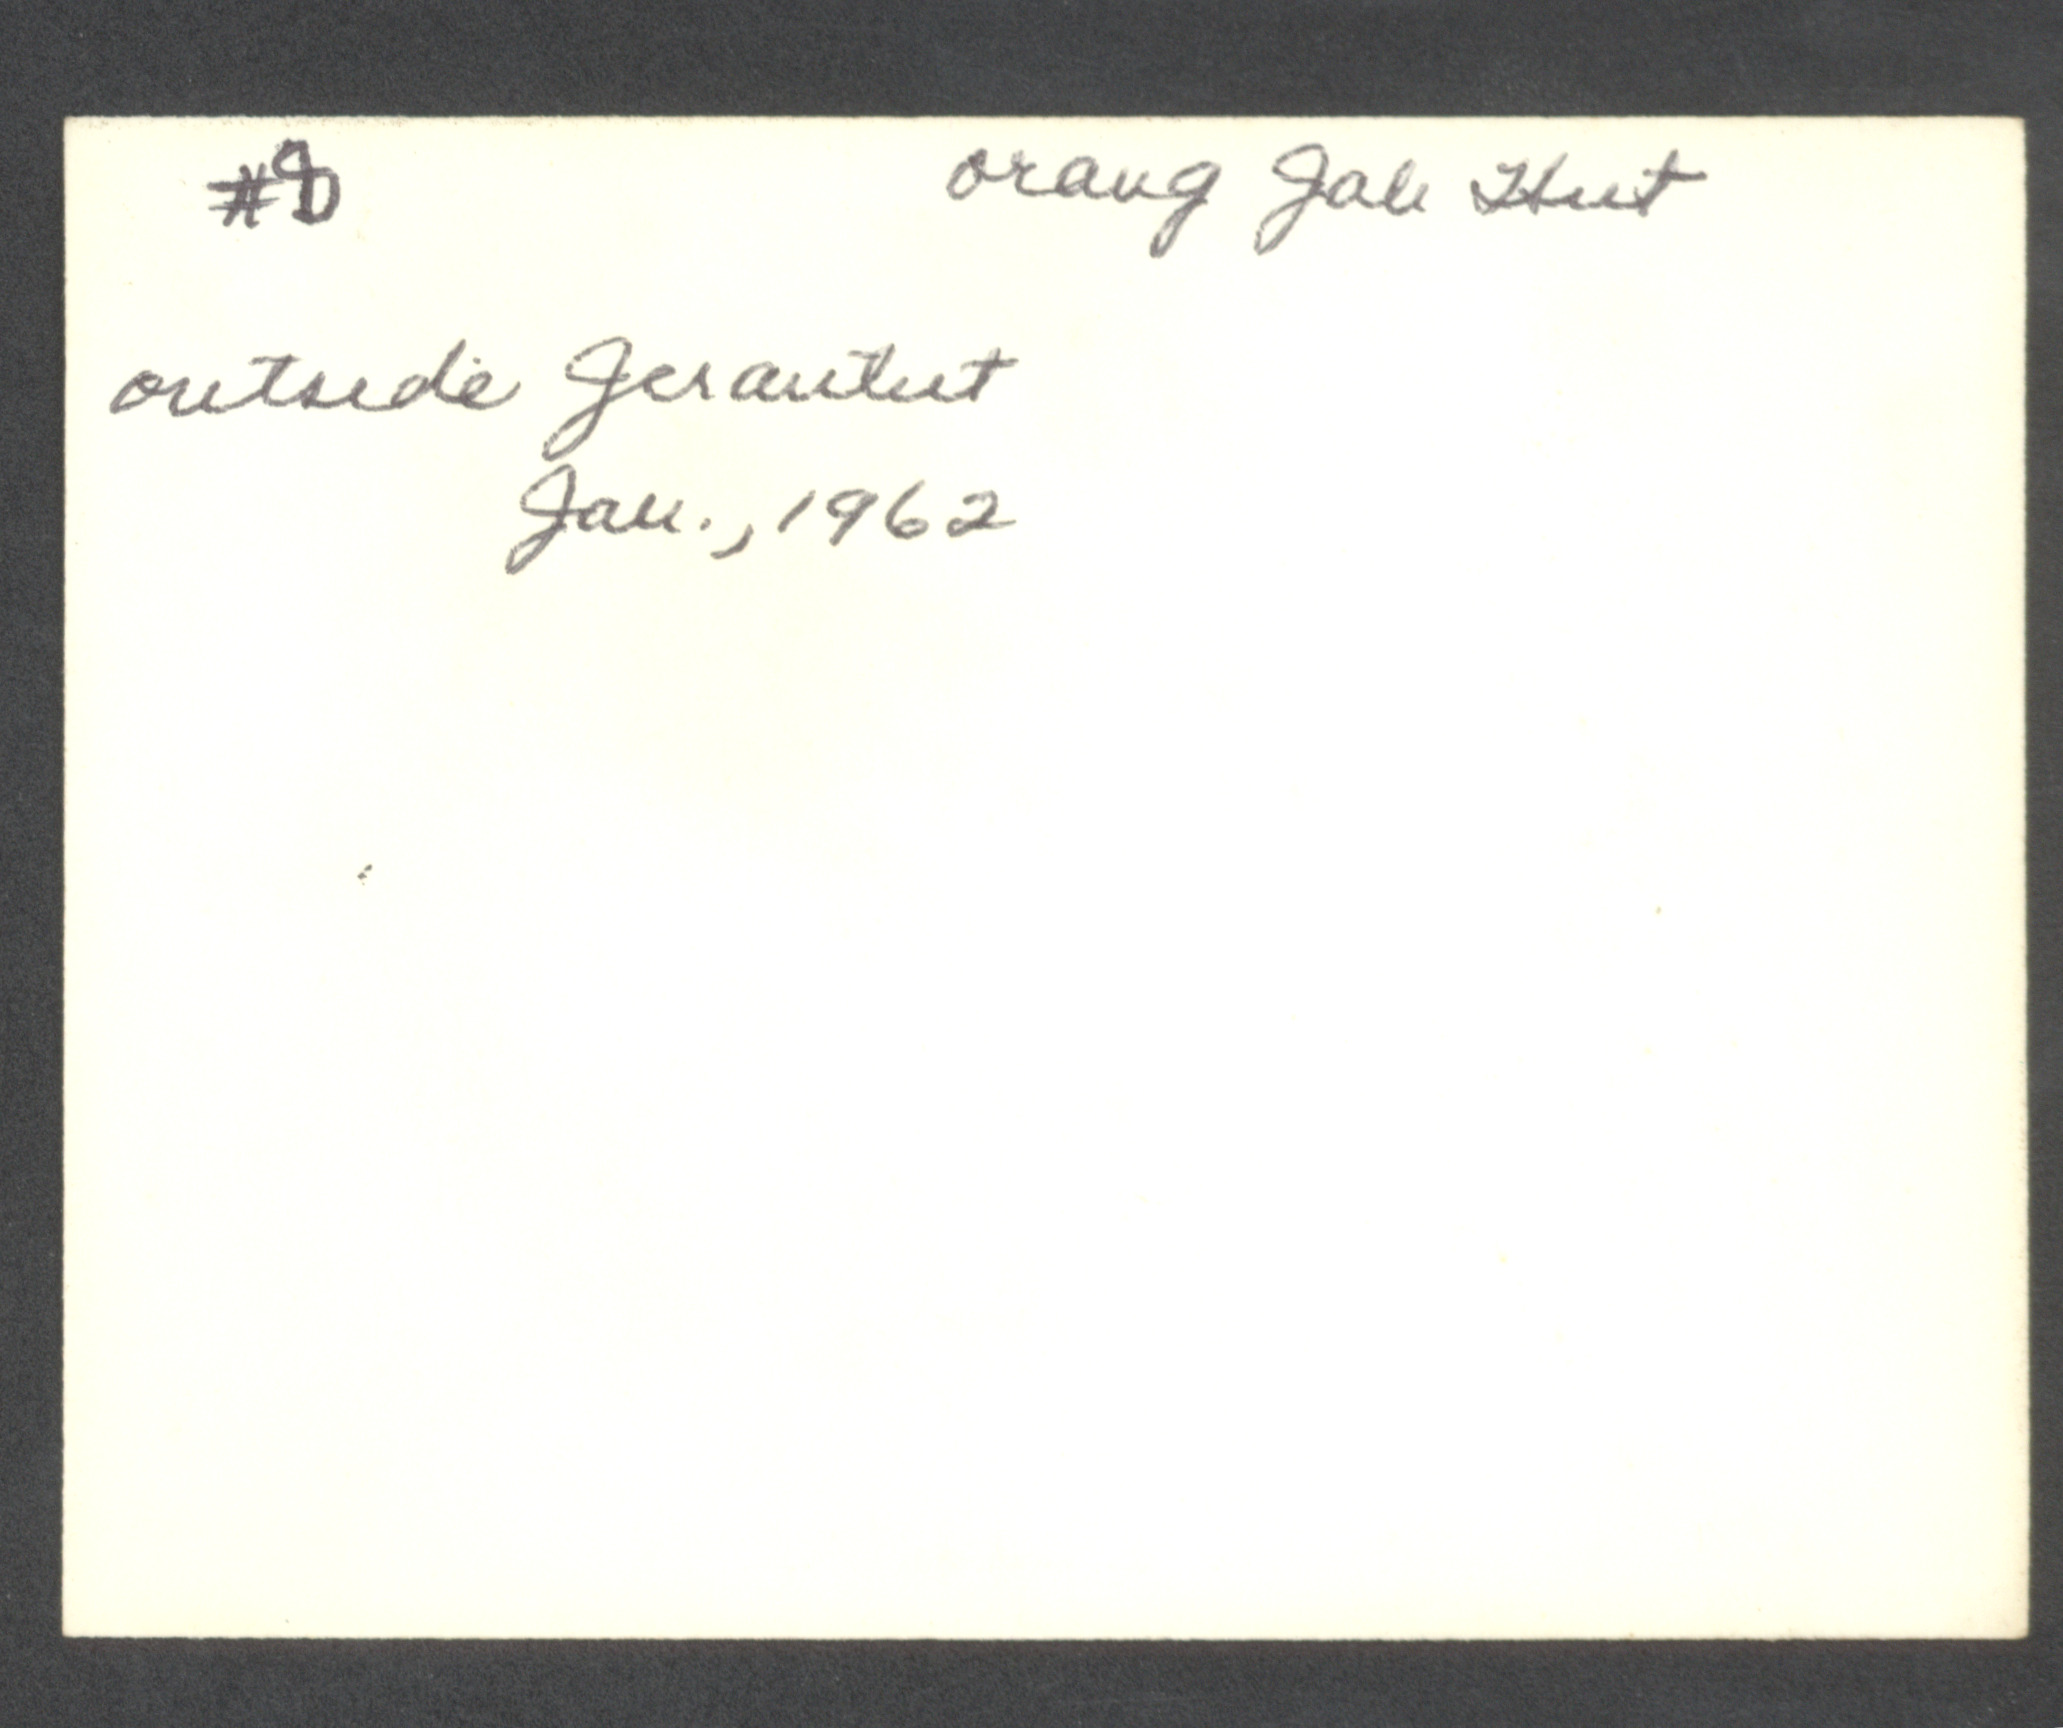 orang Jah Hut
outside Jerantut
Jan., 1962